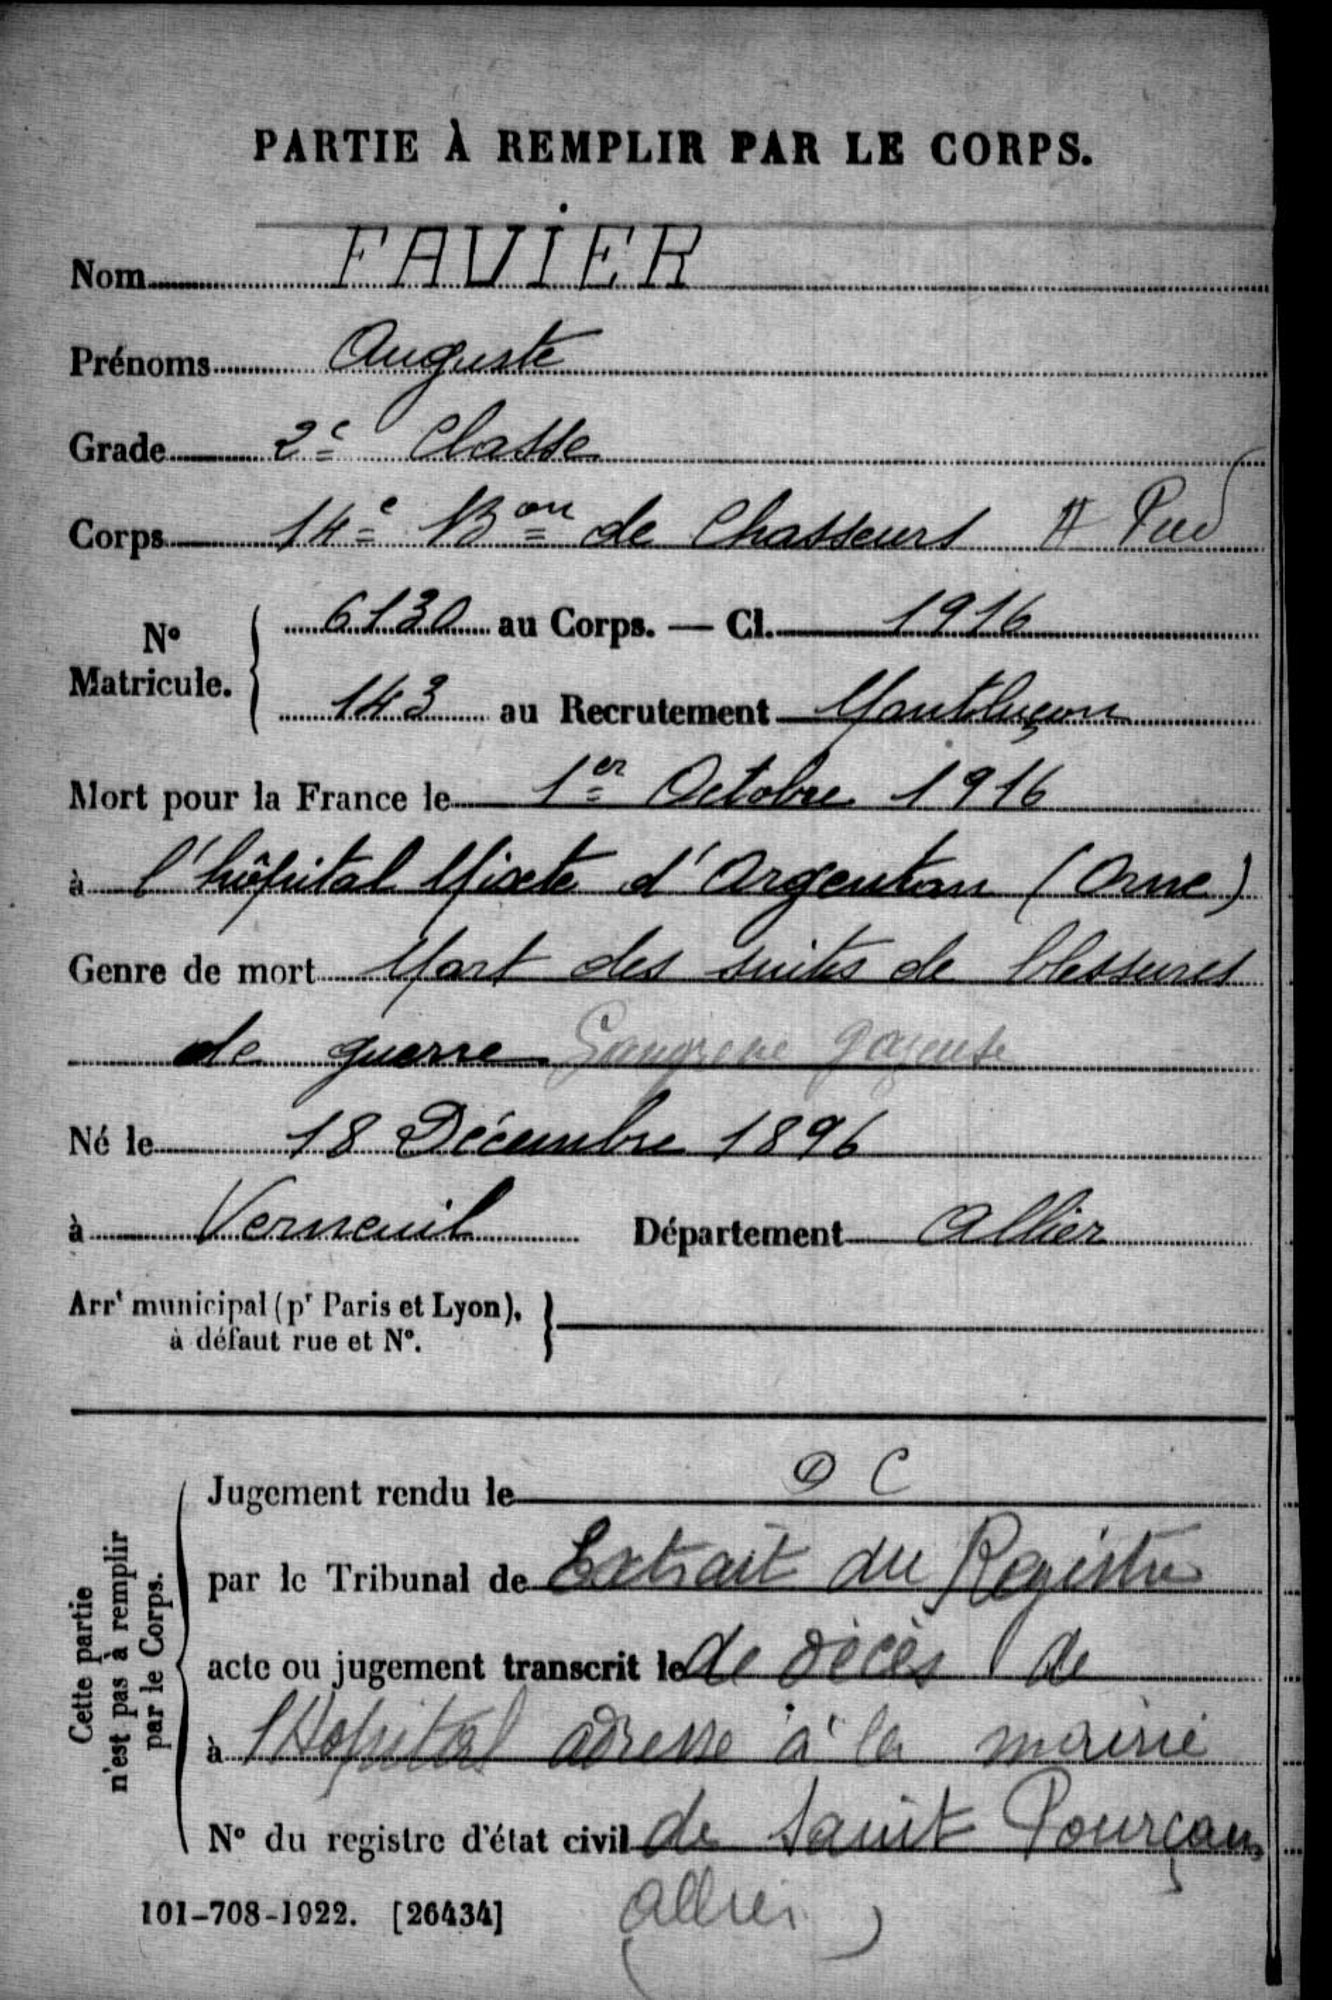 PARTIE À REMPLIR PAR LE CORPS.
Nom FAVIER
Prénoms Auguste
Grade 2e Classe
Corps 14e Bon de Chasseurs A Pied
No Matricule. 6130 au Corps. — Cl. 1916
143 au Recrutement Montluçon
Mort pour la France le 1er Octobre 1916
à l'hôpital Mixte d'Argentan (Orne)
Genre de mort Mort des suites de blessures
de guerre Gangrene gazeuse
Né le 18 Décembre 1896
à Verneuil Département Allier
Arrt municipal (pr Paris et Lyon),
à défaut rue et No.
Cette partie
n'est pas à remplir
par le Corps.
Jugement rendu le D C
par le Tribunal de Extrait du Registre
acte ou jugement transcrit le de décès de
à l'Hopital adresse à la mairie
No du registre d'état civil de Saint Pourçain
(Allier)
101-708-1922. [26434]